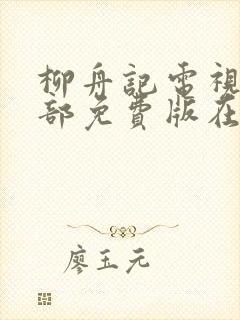 柳舟記電視
部免費版在
廖玉元